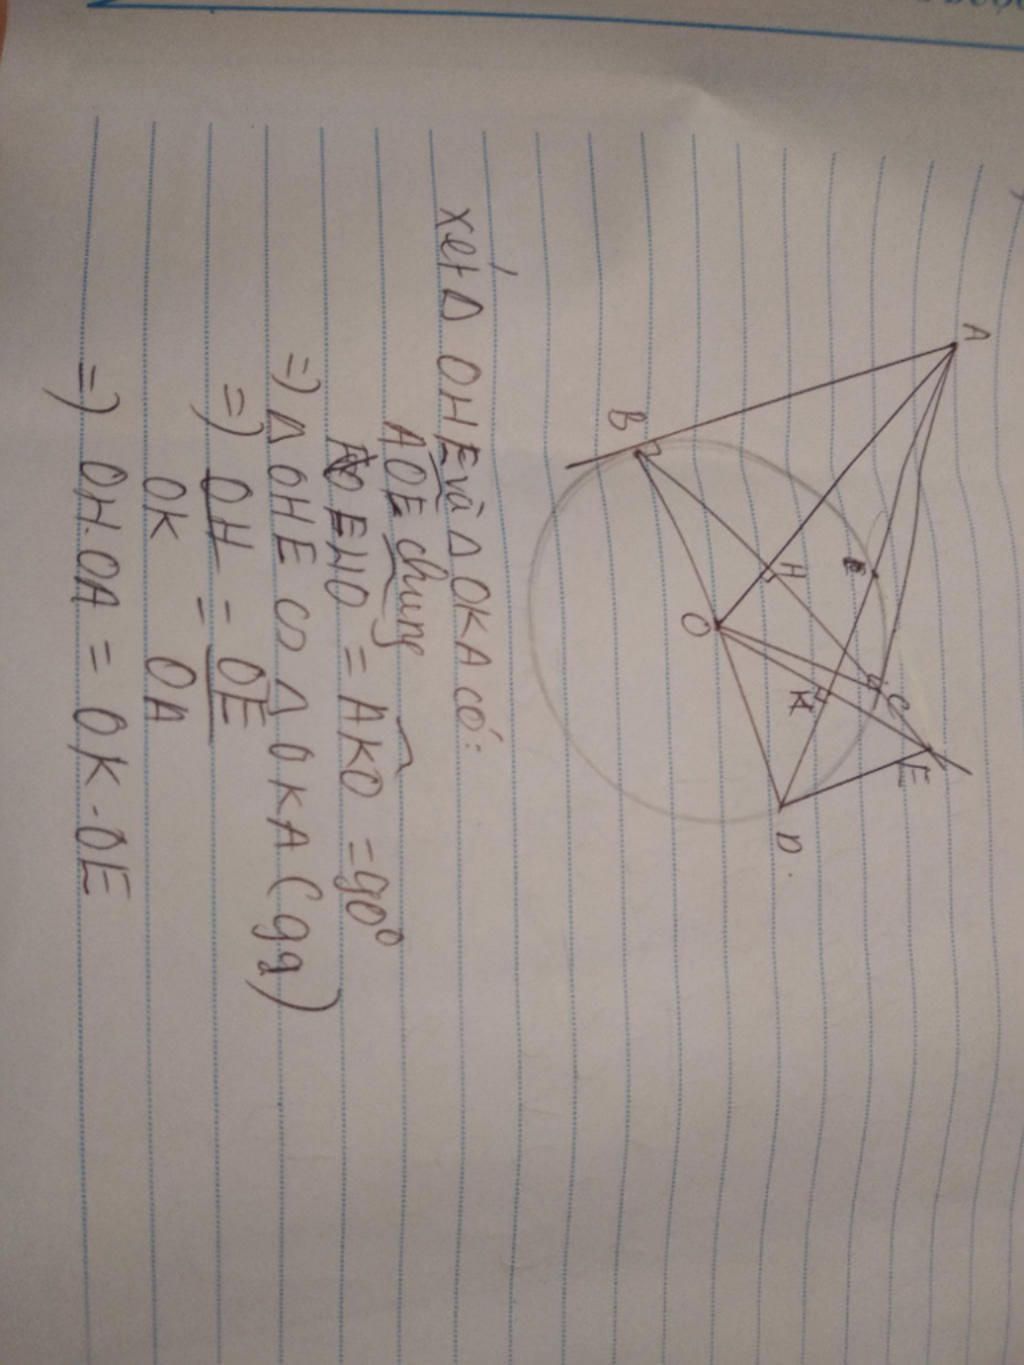 A
B
H
O
C
K
E
D
xét Δ OHE và Δ OKA có:
AOE chung
EHO = AKO = 90°
=) Δ OHE ∽ Δ OKA (gg)
=) OH/OK = OE/OA
=) OH.OA = OK.OE